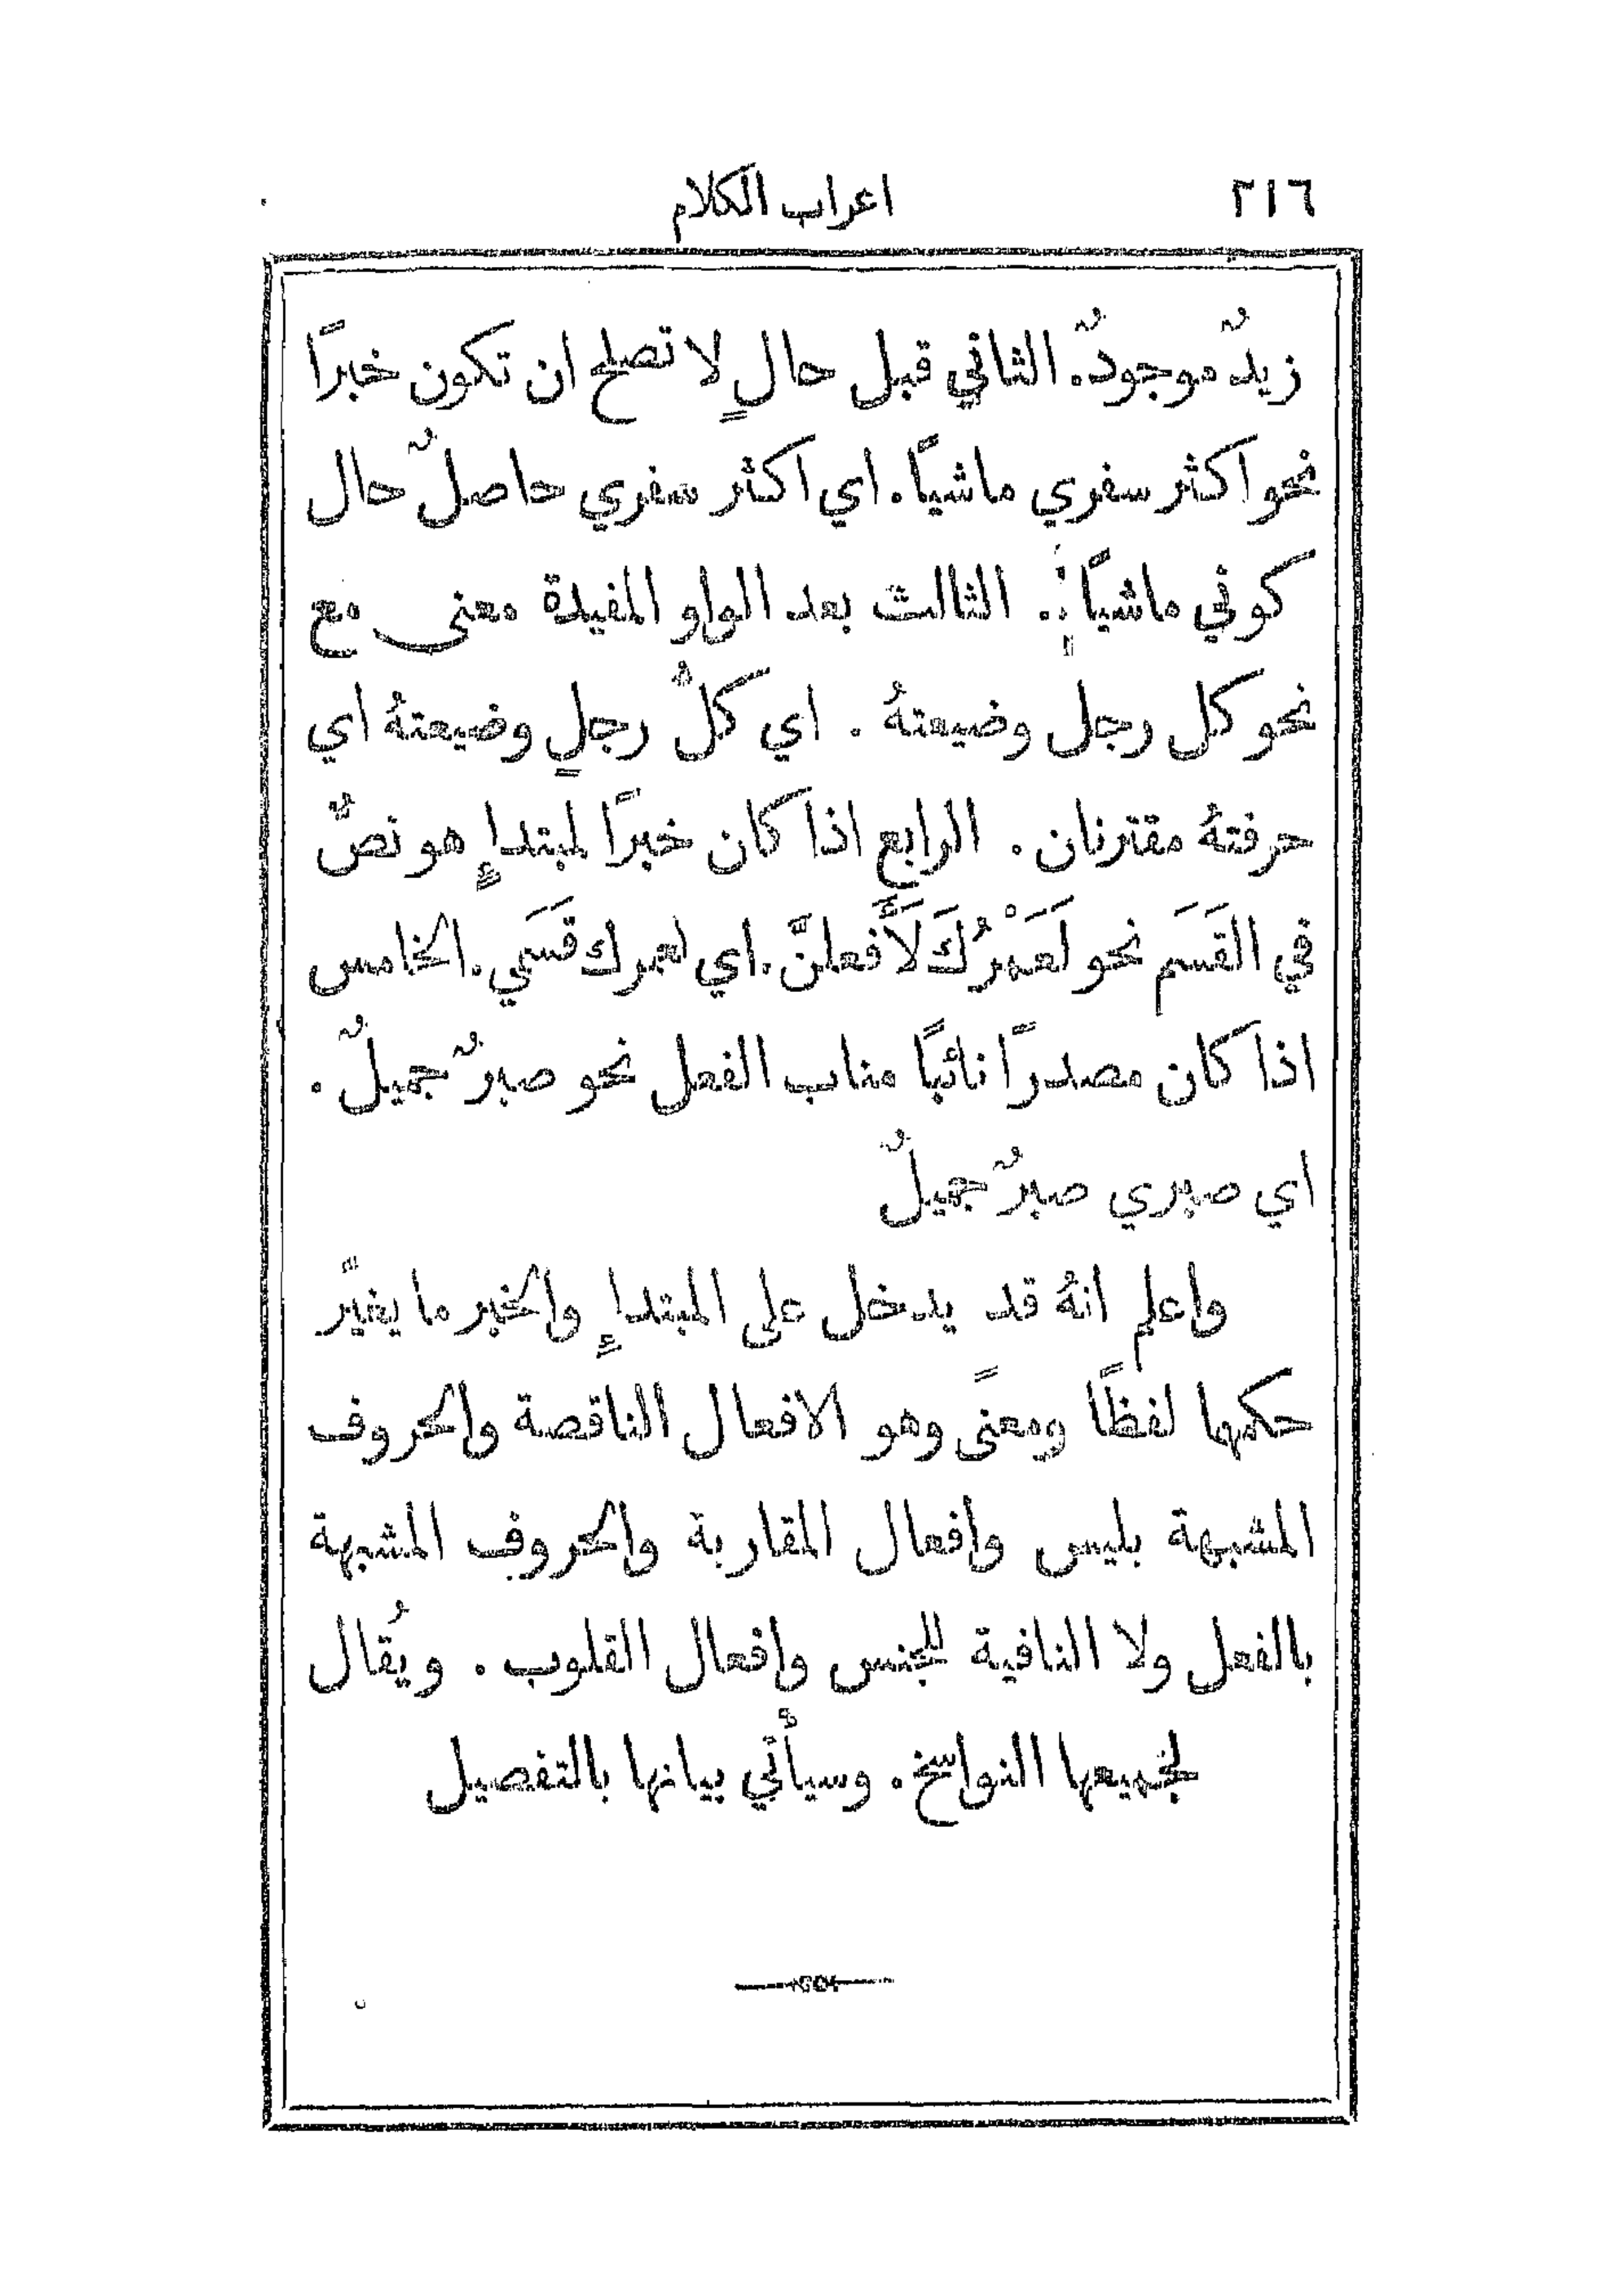 ٢١٦ اعراب الكلام
زيدٌ موجودٌ. الثاني قبل حالٍ لا تصلح ان تكون خبرًا
نحو اكثر سفري ماشيًا. اي اكثر سفري حاصلٌ حال
كوني ماشيًا. الثالث بعد الواو المفيدة معنى مع
نحو كل رجل وضيعتهُ. اي كلُّ رجلٍ وضيعتهُ اي
حرفتهُ مقترنان. الرابع اذا كان خبرًا لمبتدإٍ هو نصٌّ
في القَسَم نحو لَعَمْرُكَ لَأَفعلنَّ. اي لعمرك قَسَمي. الخامس
اذا كان مصدرًا نائبًا مناب الفعل نحو صبرٌ جميلٌ.
اي صبري صبرٌ جميلٌ
واعلم انهُ قد يدخل على المبتدإِ والخبر ما يغيّر
حكمها لفظًا ومعنًى وهو الافعال الناقصة والحروف
المشبهة بليس وافعال المقاربة والحروف المشبهة
بالفعل ولا النافية للجنس وافعال القلوب. ويُقال
لجميعها النواسخ. وسيأتي بيانها بالتفصيل